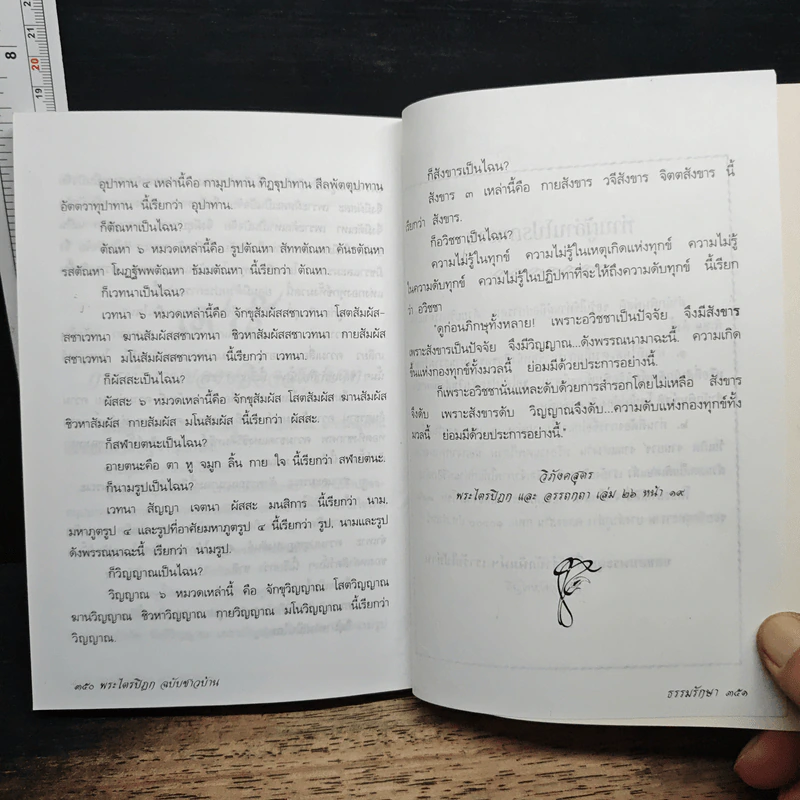 อุปาทาน ๔ เหล่านี้คือ กามุปาทาน ทิฏฐุปาทาน สีลพัตตุปาทาน
อัตตวาทุปาทาน นี้เรียกว่า อุปาทาน.
ก็ตัณหาเป็นไฉน?
ตัณหา ๖ หมวดเหล่านี้คือ รูปตัณหา สัททตัณหา คันธตัณหา
รสตัณหา โผฏฐัพพตัณหา ธัมมตัณหา นี้เรียกว่า ตัณหา.
ก็เวทนาเป็นไฉน?
เวทนา ๖ หมวดเหล่านี้คือ จักขุสัมผัสสชาเวทนา โสตสัมผัส-
สชาเวทนา ฆานสัมผัสสชาเวทนา ชิวหาสัมผัสสชาเวทนา กายสัมผัส
สชาเวทนา มโนสัมผัสสชาเวทนา นี้เรียกว่า เวทนา.
ก็ผัสสะเป็นไฉน?
ผัสสะ ๖ หมวดเหล่านี้คือ จักขุสัมผัส โสตสัมผัส ฆานสัมผัส
ชิวหาสัมผัส กายสัมผัส มโนสัมผัส นี้เรียกว่า ผัสสะ.
ก็สฬายตนะเป็นไฉน?
อายตนะคือ ตา หู จมูก ลิ้น กาย ใจ นี้เรียกว่า สฬายตนะ.
ก็นามรูปเป็นไฉน?
เวทนา สัญญา เจตนา ผัสสะ มนสิการ นี้เรียกว่า นาม.
มหาภูตรูป ๔ และรูปที่อาศัยมหาภูตรูป ๔ นี้เรียกว่า รูป. นามและรูป
ดังพรรณนาฉะนี้ เรียกว่า นามรูป.
ก็วิญญาณเป็นไฉน?
วิญญาณ ๖ หมวดเหล่านี้ คือ จักขุวิญญาณ โสตวิญญาณ
ฆานวิญญาณ ชิวหาวิญญาณ กายวิญญาณ มโนวิญญาณ นี้เรียกว่า
วิญญาณ.
๓๕๐ พระไตรปิฎก ฉบับชาวบ้าน
ก็สังขารเป็นไฉน?
สังขาร ๓ เหล่านี้คือ กายสังขาร วจีสังขาร จิตตสังขาร นี้
เรียกว่า สังขาร.
ก็อวิชชาเป็นไฉน?
ความไม่รู้ในทุกข์ ความไม่รู้ในเหตุเกิดแห่งทุกข์ ความไม่รู้
ในความดับทุกข์ ความไม่รู้ในปฏิปทาที่จะให้ถึงความดับทุกข์ นี้เรียก
ว่า อวิชชา
"ดูก่อนภิกษุทั้งหลาย! เพราะอวิชชาเป็นปัจจัย จึงมีสังขาร
เพราะสังขารเป็นปัจจัย จึงมีวิญญาณ...ดังพรรณนามาฉะนี้. ความเกิด
ขึ้นแห่งกองทุกข์ทั้งมวลนี้ ย่อมมีด้วยประการอย่างนี้.
ก็เพราะอวิชชานั่นแหละดับด้วยการสำรอกโดยไม่เหลือ สังขาร
จึงดับ เพราะสังขารดับ วิญญาณจึงดับ...ความดับแห่งกองทุกข์ทั้ง
มวลนี้ ย่อมมีด้วยประการอย่างนี้."
วิภังคสูตร
พระไตรปิฎก และ อรรถกถา เล่ม ๒๖ หน้า ๑๙
ธรรมรักษา ๓๕๑
8
21
20
19